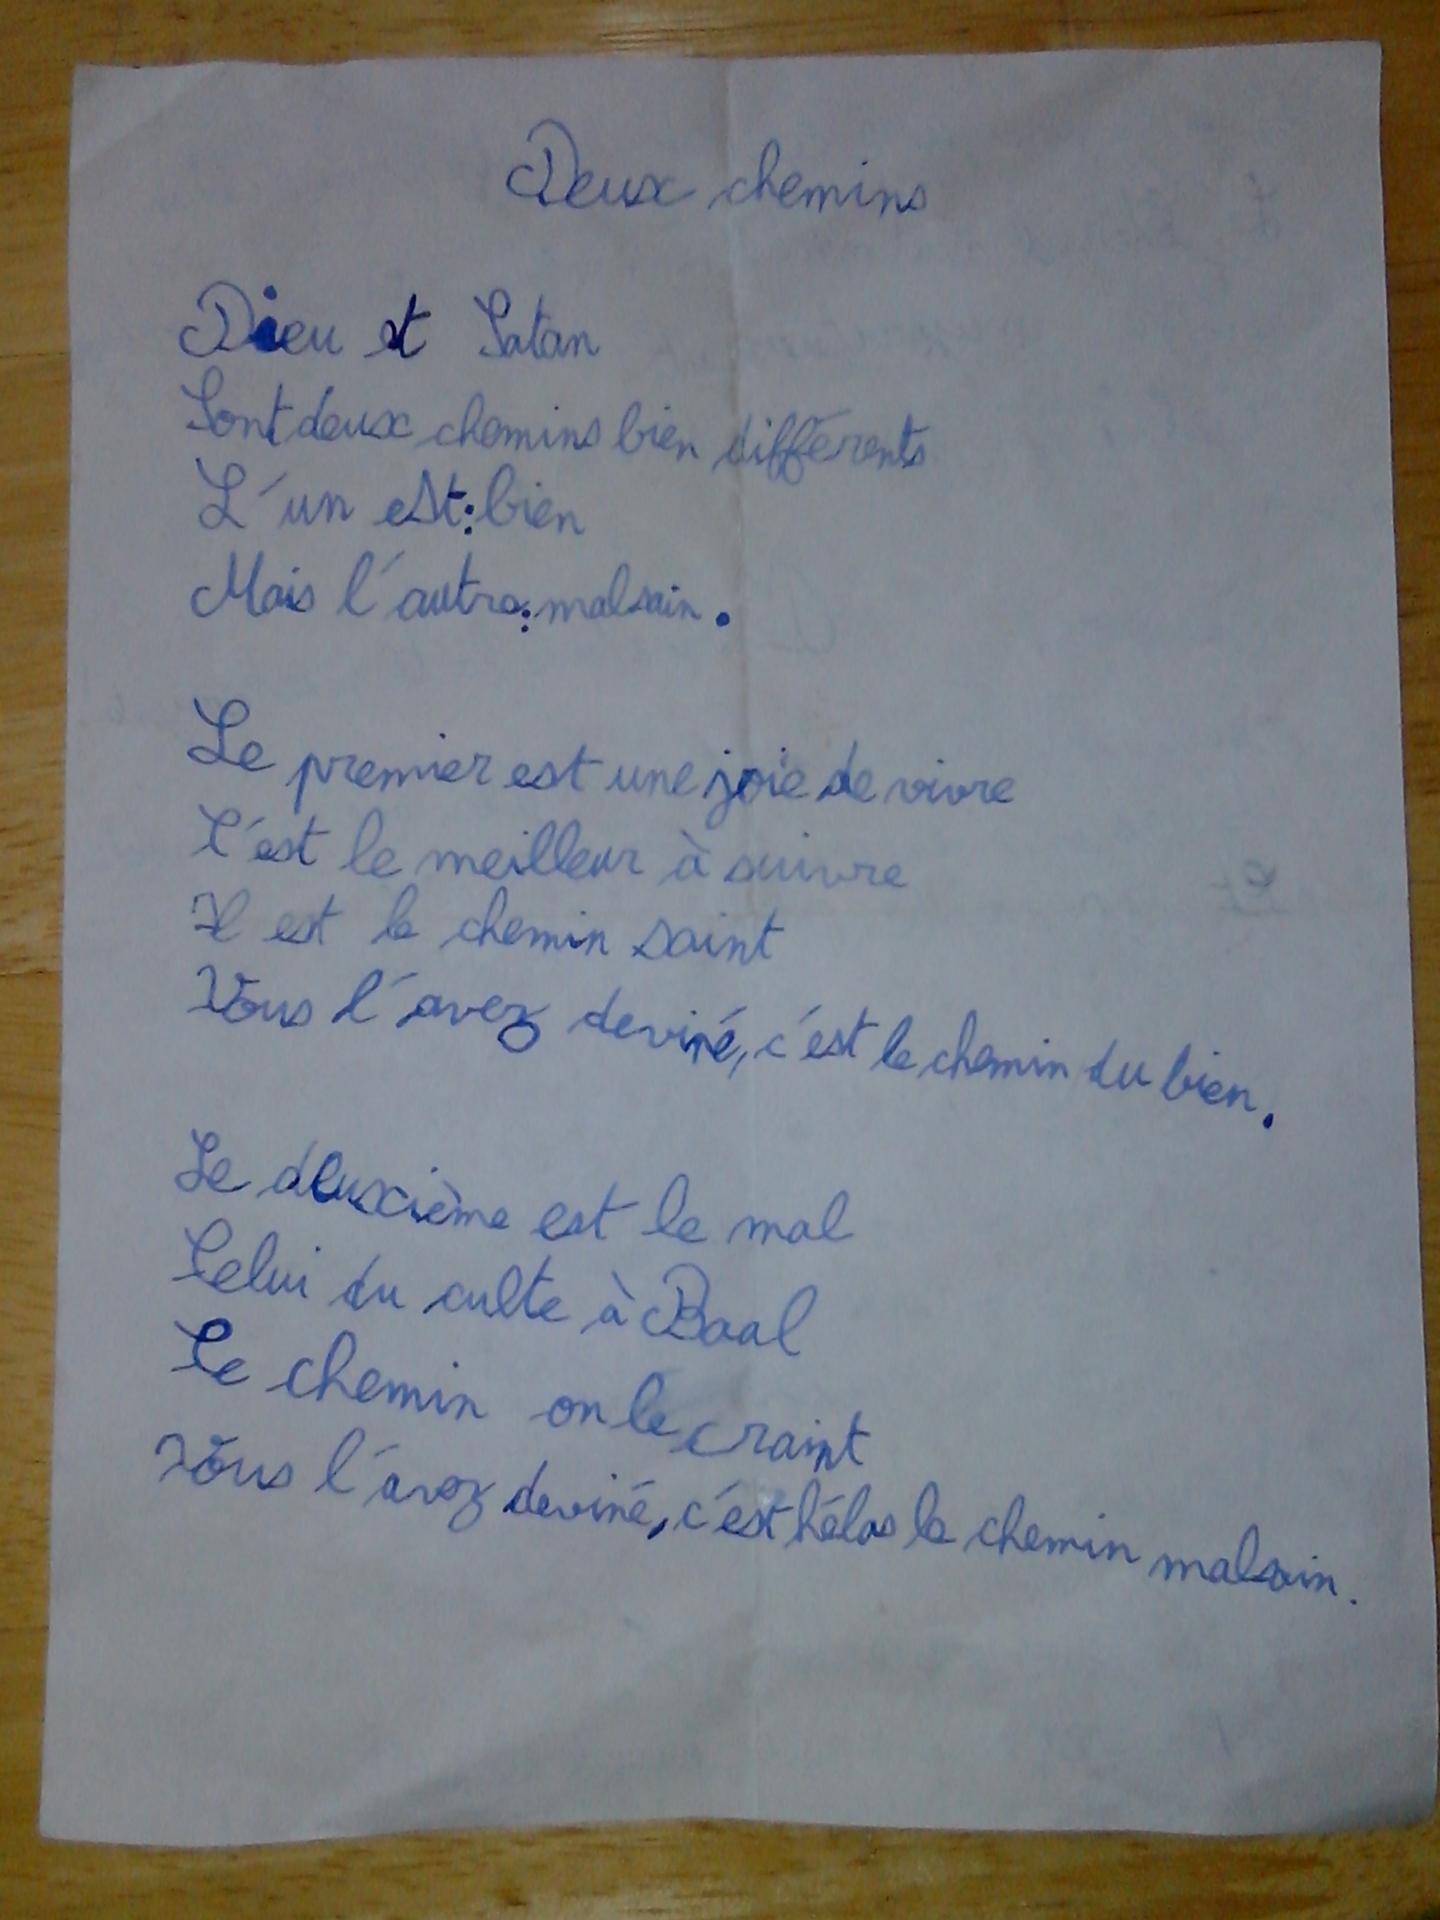 Deux chemins
Dieu et Satan
Sont deux chemins bien différents
L'un est: bien
Mais l'autre: malsain.
Le premier est une joie de vivre
C'est le meilleur à suivre
Il est le chemin saint
Vous l'avez deviné, c'est le chemin du bien.
Le deuxième est le mal
Celui du culte à Baal
Ce chemin on le craint
Vous l'avez deviné, c'est hélas le chemin malsain.